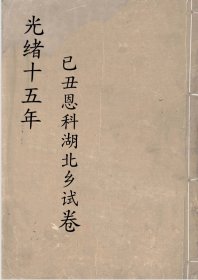 光绪十五年
己丑恩科湖北乡试卷